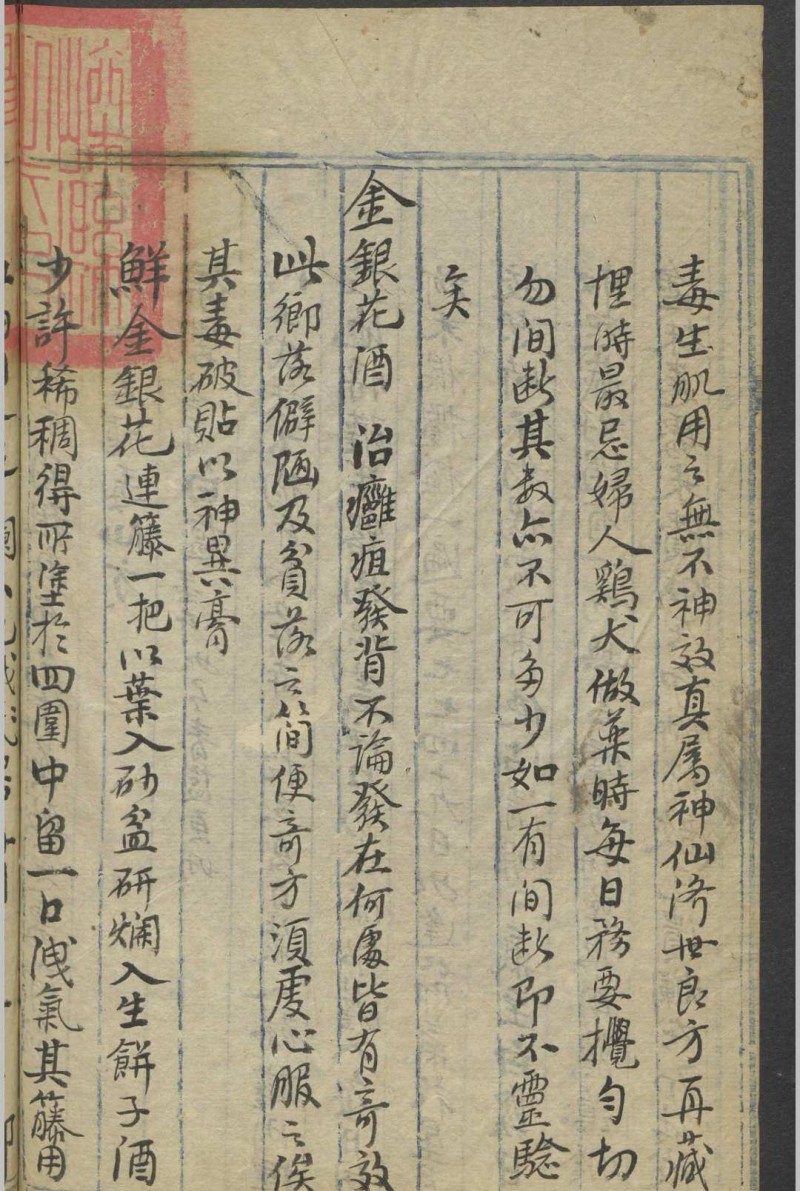 毒生肌用之無不神效真属神仙济世良方再藏
埋時最忌婦人鷄犬做藥時每日務要攪匀切
勿间断其数亦不可多少如一有间断即不靈驗
矣
金銀花酒 治癰疽發背不論發在何處皆有奇效
此鄉落僻陋及貧落之簡便奇方須虔心服之俟
其毒破貼以神異膏
鮮金銀花連籐一把以葉入砂盆研爛入生餅子酒
少許稀稠得所塗於四圍中留一口洩氣其籐用